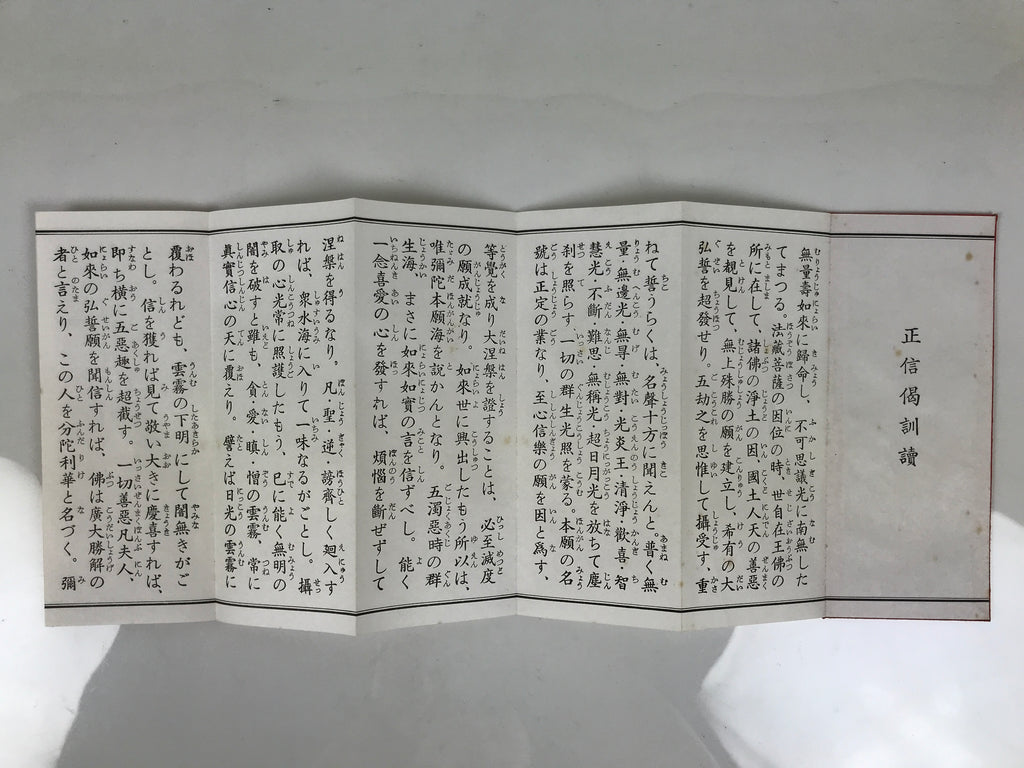 正信偈訓讀
無量壽如來に歸命し、不可思議光に南無した
てまつる。法藏菩薩の因位の時、世自在王佛の
所に在して、諸佛の淨土の因、國土人天の善惡
を覩見して、無上殊勝の願を建立し、希有の大
弘誓を超發せり。五劫之を思惟して攝受す、重
ねて誓うらくは、名聲十方に聞えんと。普く無
量・無邊光・無㝵・無對・光炎王・清淨・歡喜・智
慧光・不斷・難思・無稱光・超日月光を放ちて塵
刹を照らす、一切の群生光照を蒙る。本願の名
號は正定の業なり、至心信樂の願を因と爲す、
等覺を成り大涅槃を證することは、必至滅度
の願成就なり。如來世に興出したもう所以は、
唯彌陀本願海を說かんとなり。五濁惡時の群
生海、まさに如來如實の言を信ずべし。能く
一念喜愛の心を發すれば、煩惱を斷ぜずして
涅槃を得るなり。凡聖・逆謗齊しく廻入す
れば、衆水海に入りて一味なるがごとし。攝
取の心光常に照護したもう、已に能く無明の
闇を破すと雖も、貪愛・瞋憎の雲霧常に
眞實信心の天に覆えり。譬えば日光の雲霧に
覆わるれども、雲霧の下明にして闇無きがご
とし。信を獲れば見て敬い大きに慶喜すれば、
即ち横に五惡趣を超截す。一切善惡凡夫人、
如來の弘誓願を聞信すれば、佛は廣大勝解の
者と言えり、この人を分陀利華と名づく。彌